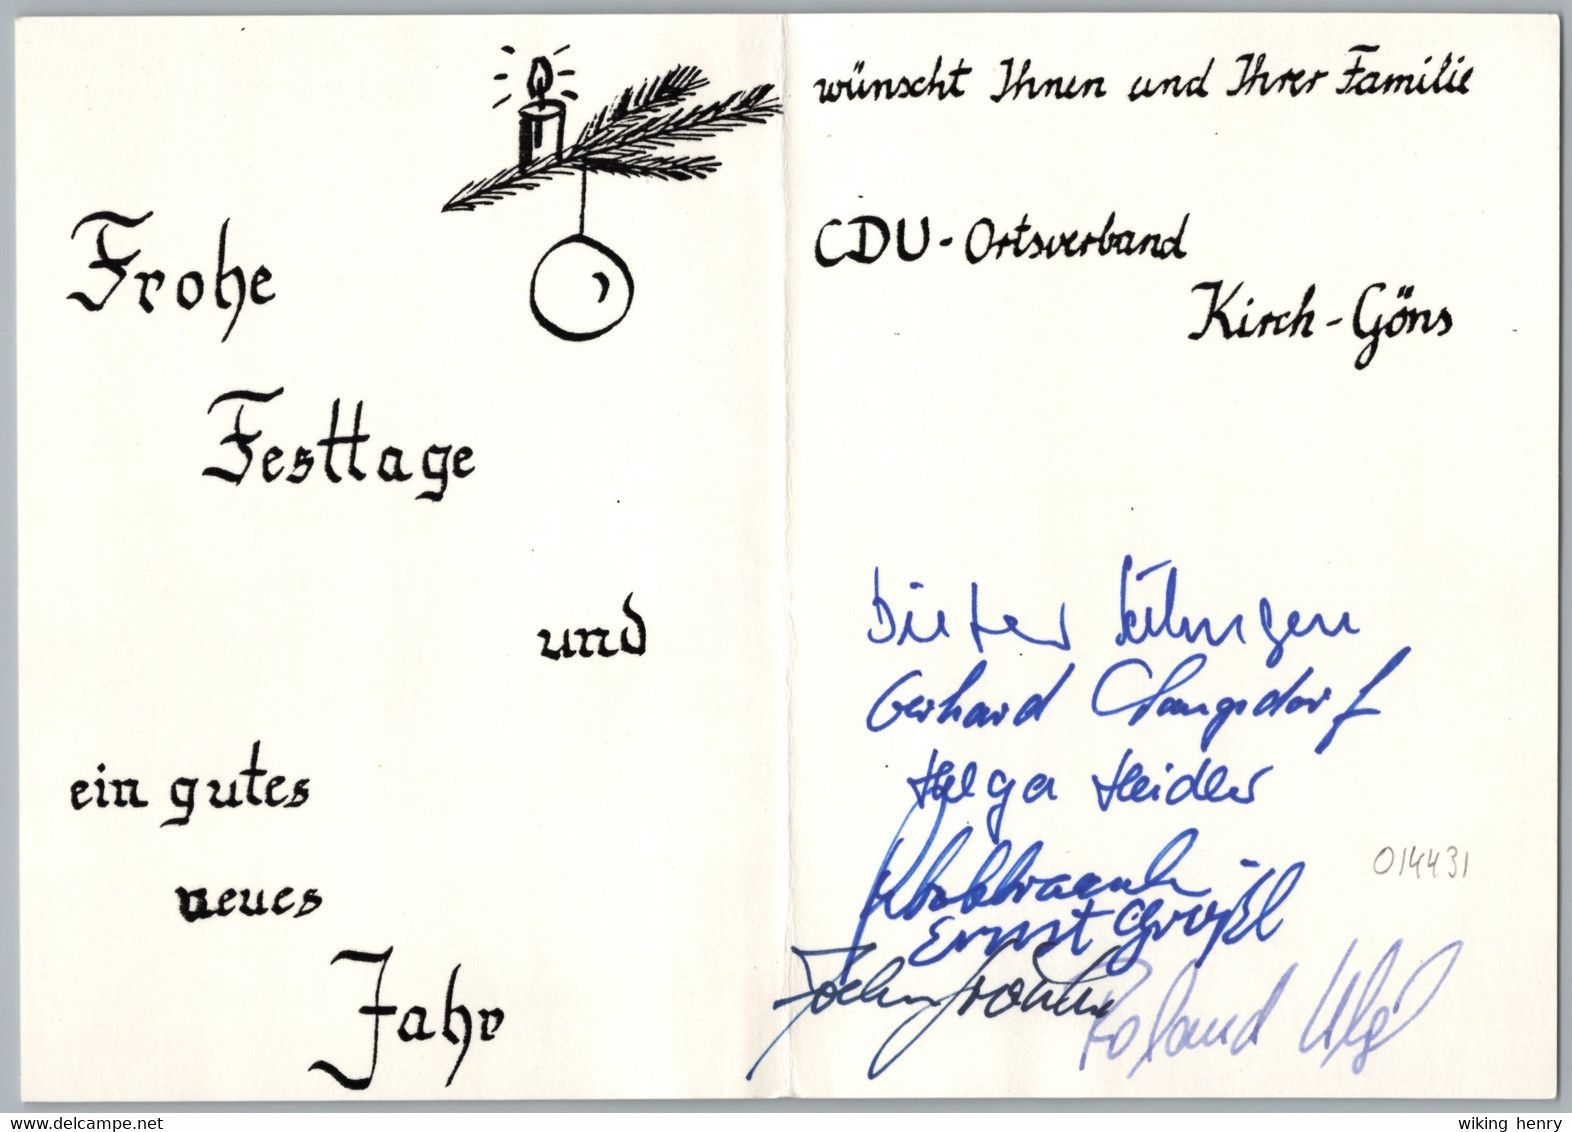 Frohe
Festtage
und
ein gutes
neues
Jahr
wünscht Ihnen und Ihrer Familie
CDU-Ortsverband
Kirch-Göns
Dieter
Gerhard Langsdorf
Helga Heider
Ernst
014431
Roland
wiking henry